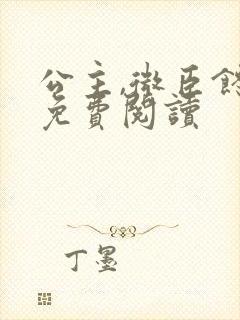 公主,微臣餓
免費閱讀
丁墨